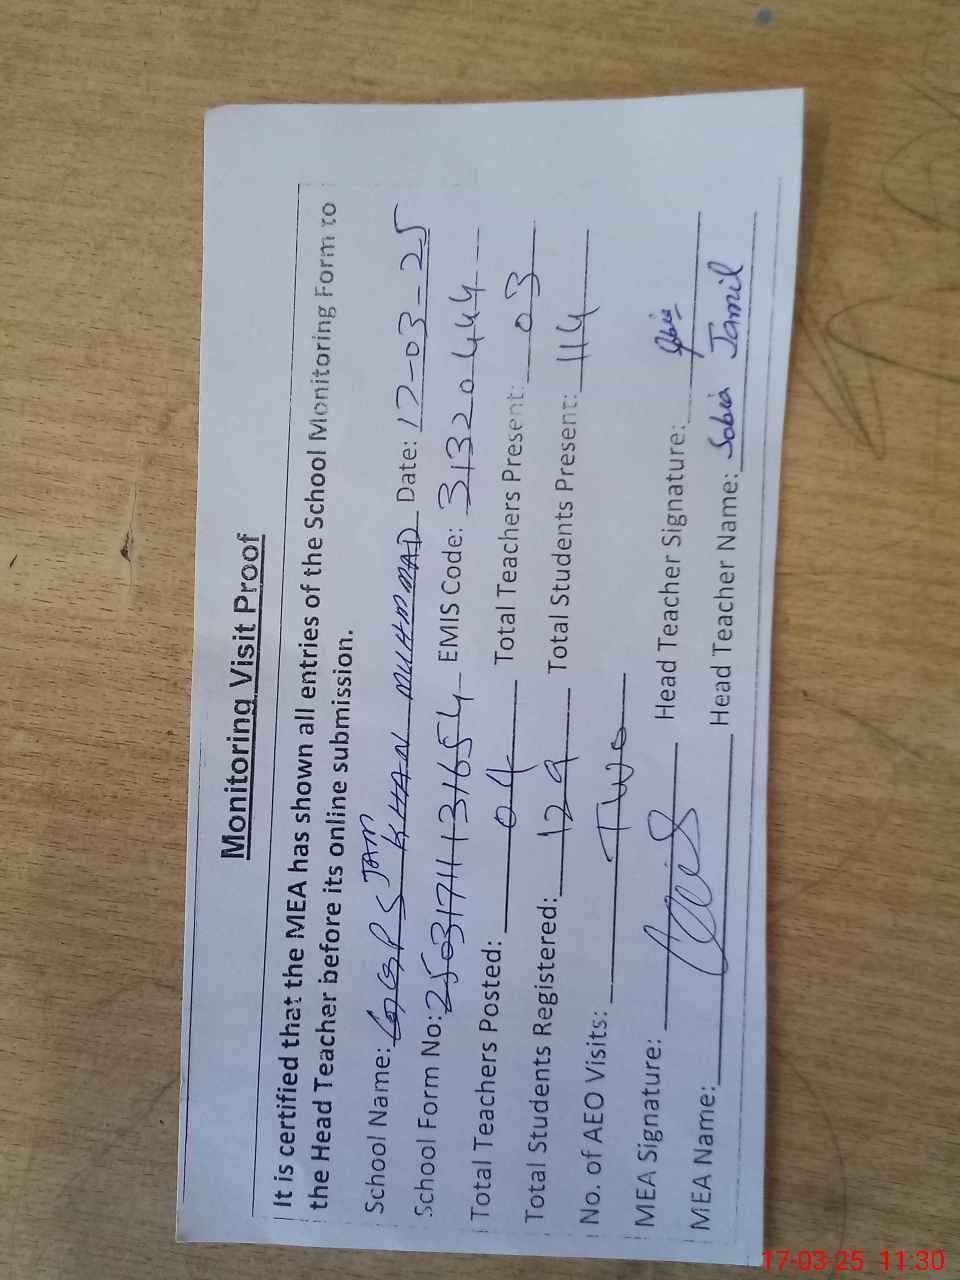 Monitoring Visit Proof
It is certified that the MEA has shown all entries of the School Monitoring Form to
the Head Teacher before its online submission.
School Name: GGPS JAM KHAN MUHMMAD Date: 17-03-25
School Form No: 2503171113165４ EMIS Code: 31320444
Total Teachers Posted: 04 Total Teachers Present: 03
Total Students Registered: 129 Total Students Present: 114
No. of AEO Visits: Two
MEA Signature: Head Teacher Signature:
MEA Name: Head Teacher Name: Sobia Jamil
17-03-25 11:30